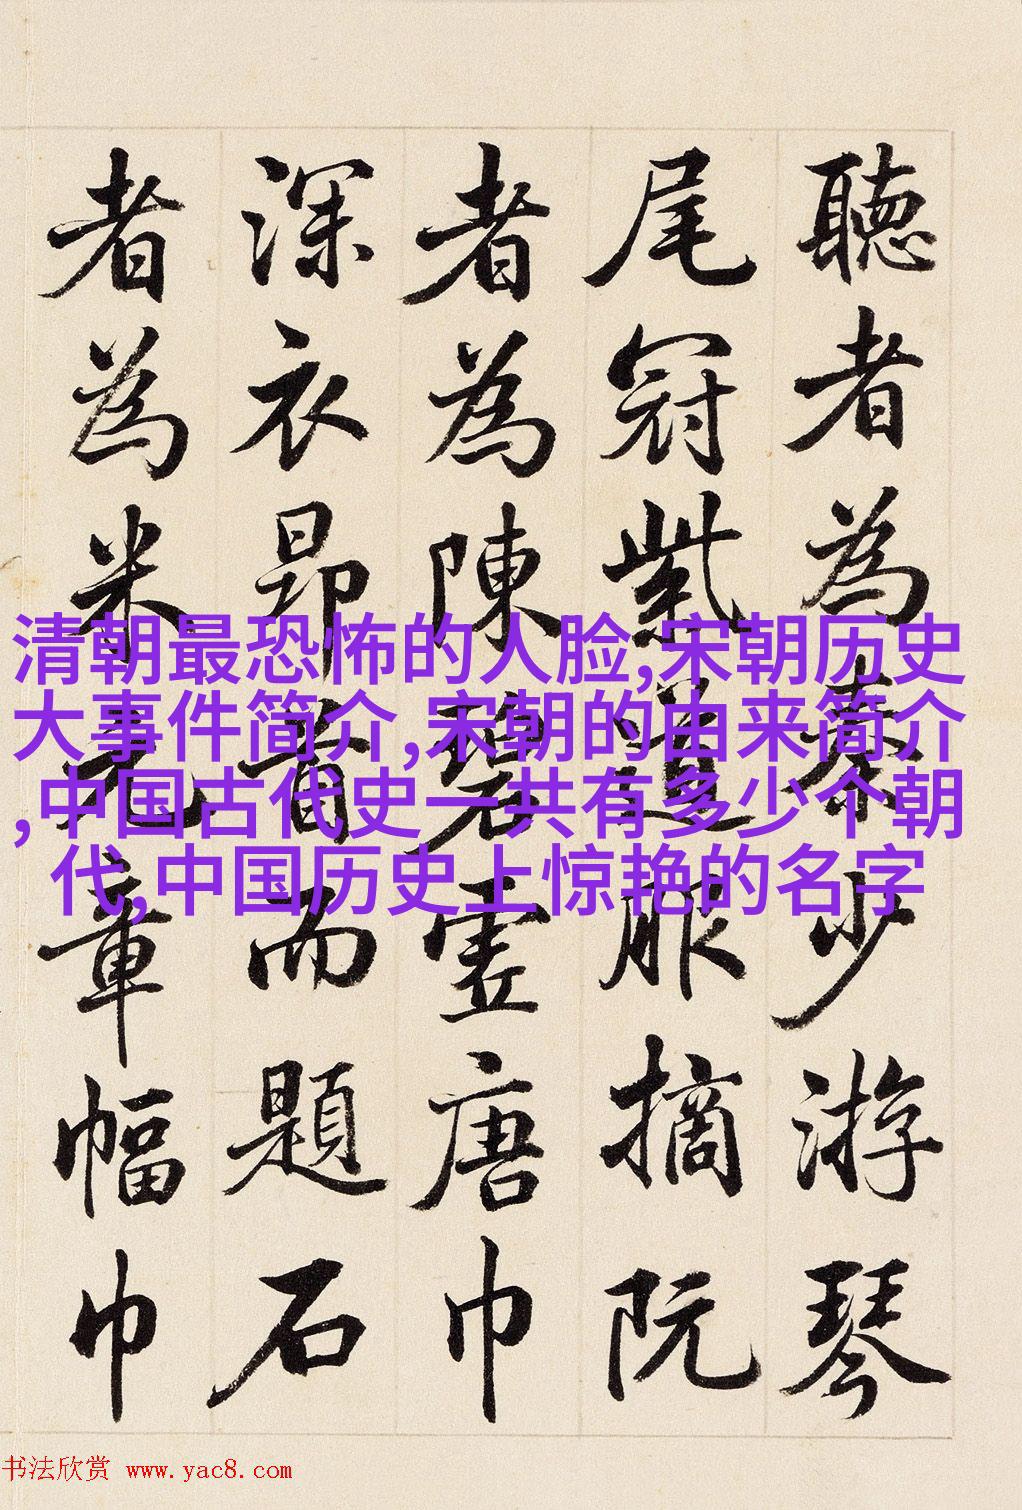 聽者為秦少游琴
尾冠紫道服摘阮
者為陳碧虛唐巾
深衣昂首而題石
者為米元章幅巾
清朝最恐怖的人脸,宋朝历史
大事件简介,宋朝的由来简介
,中国古代史一共有多少个朝
代,中国历史上惊艳的名字
书法欣赏 www.yac8.com